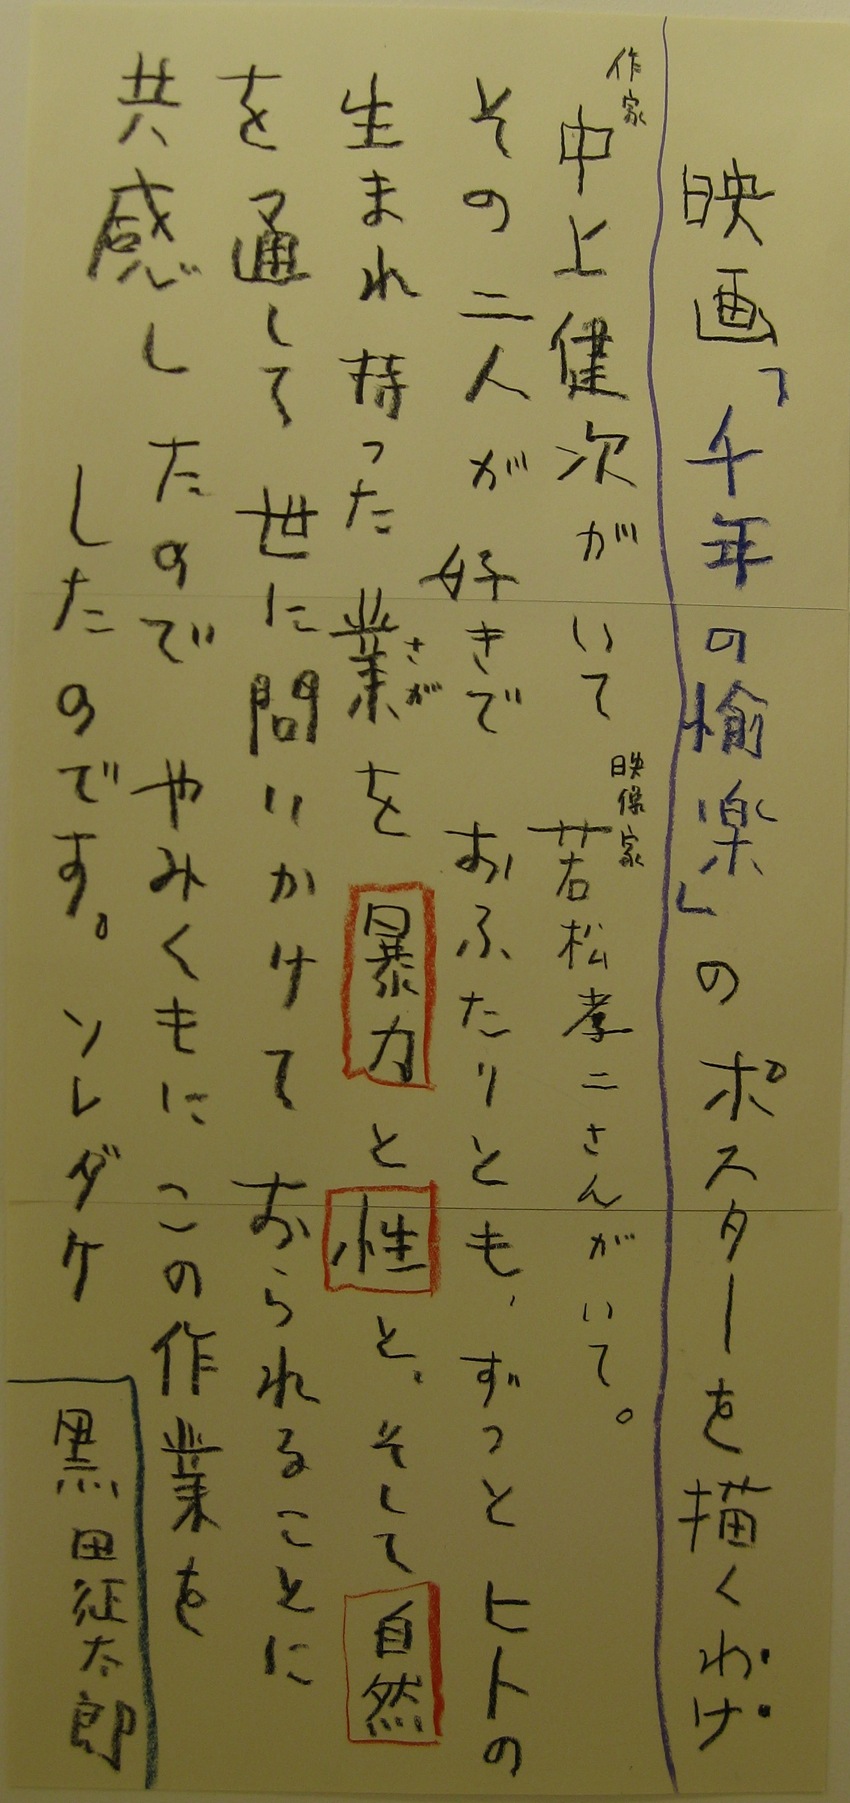 映画「千年の愉楽」のポスターを描くわけ
作家
中上健次がいて 若松孝二さんがいて。
映像家
その二人が好きで おふたりとも、ずっと ヒトの
生まれ持った業を 暴力と性と、そして自然
さが
を通して 世に問いかけて おられることに
共感したので やみくもに この作業を
したのです。ソレダケ
黒田征太郎